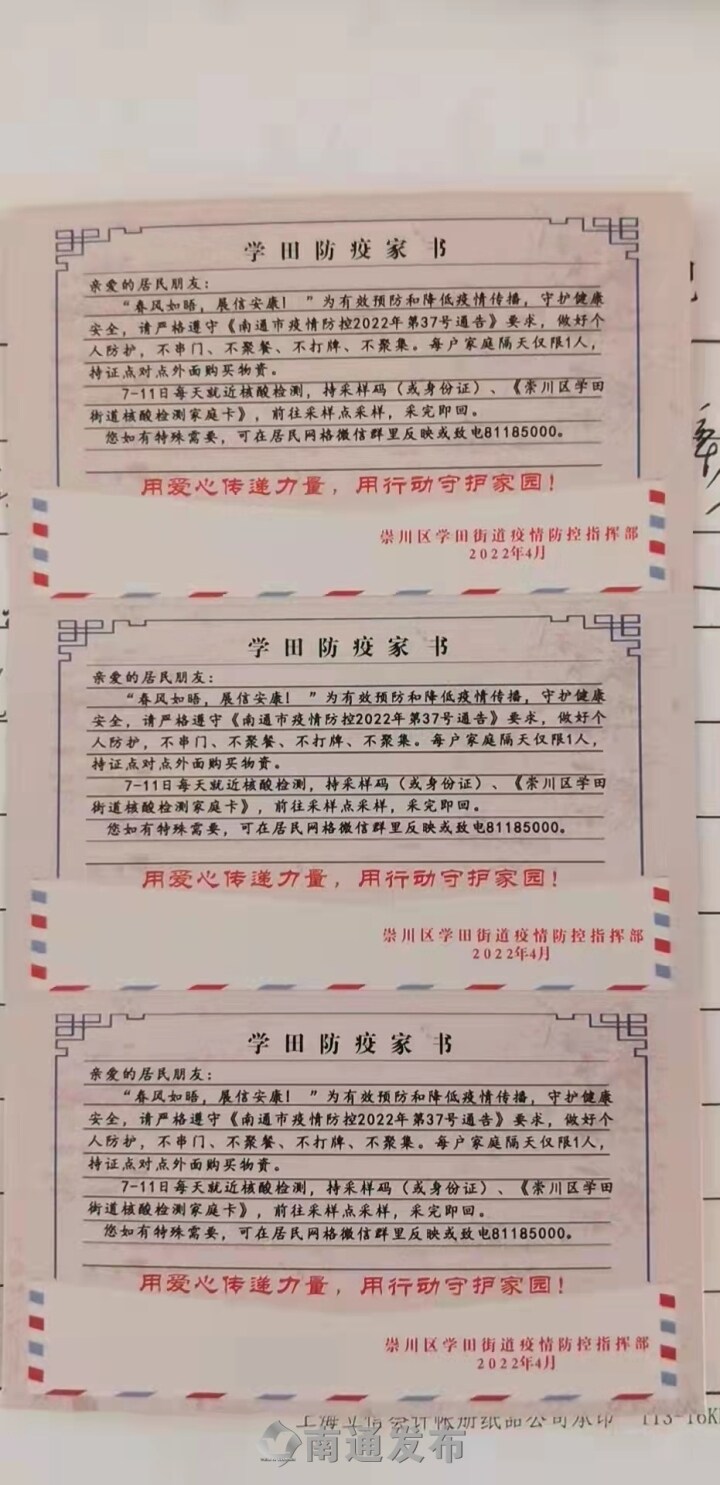 学田防疫家书
亲爱的居民朋友：
“春风如晤，展信安康！”为有效预防和降低疫情传播，守护健康
安全，请严格遵守《南通市疫情防控2022年第37号通告》要求，做好个
人防护，不串门、不聚餐、不打牌、不聚集。每户家庭隔天仅限1人，
持证点对点外面购买物资。
7-11日每天就近核酸检测，持采样码（或身份证）、《崇川区学田
街道核酸检测家庭卡》，前往采样点采样，采完即回。
您如有特殊需要，可在居民网格微信群里反映或致电81185000。
用爱心传递力量，用行动守护家园！
崇川区学田街道疫情防控指挥部
2022年4月
学田防疫家书
亲爱的居民朋友：
“春风如晤，展信安康！”为有效预防和降低疫情传播，守护健康
安全，请严格遵守《南通市疫情防控2022年第37号通告》要求，做好个
人防护，不串门、不聚餐、不打牌、不聚集。每户家庭隔天仅限1人，
持证点对点外面购买物资。
7-11日每天就近核酸检测，持采样码（或身份证）、《崇川区学田
街道核酸检测家庭卡》，前往采样点采样，采完即回。
您如有特殊需要，可在居民网格微信群里反映或致电81185000。
用爱心传递力量，用行动守护家园！
崇川区学田街道疫情防控指挥部
2022年4月
学田防疫家书
亲爱的居民朋友：
“春风如晤，展信安康！”为有效预防和降低疫情传播，守护健康
安全，请严格遵守《南通市疫情防控2022年第37号通告》要求，做好个
人防护，不串门、不聚餐、不打牌、不聚集。每户家庭隔天仅限1人，
持证点对点外面购买物资。
7-11日每天就近核酸检测，持采样码（或身份证）、《崇川区学田
街道核酸检测家庭卡》，前往采样点采样，采完即回。
您如有特殊需要，可在居民网格微信群里反映或致电81185000。
用爱心传递力量，用行动守护家园！
崇川区学田街道疫情防控指挥部
2022年4月
上海立信会计帐册纸品公司承印 113-16K
南通发布